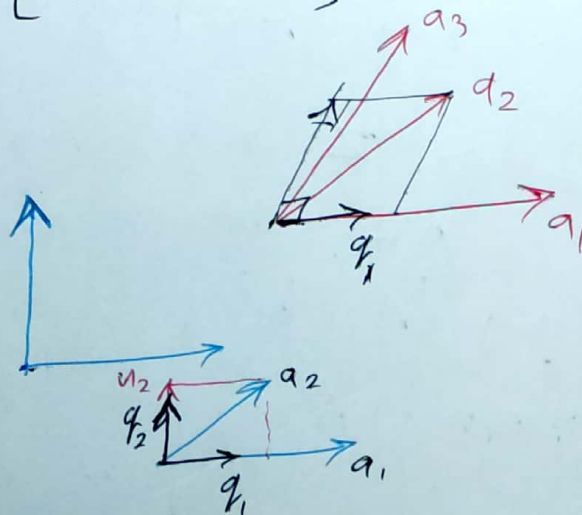 a3
a2
a1
q1
u2
a2
q2
a1
q1